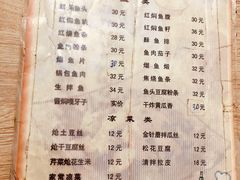 类
红焖鱼头 30元 红焖鱼腹 30元
红焖鱼条 30元 红焖鱼籽 30元
鱼 28元 酥鱼排 30元
鱼肉炒 30元 鱼肉茄子 30元
熘鱼片 30元 熘鱼条 30元
锅包鱼肉 30元 焦烧鱼条 30元
生拌鱼 30元 鱼头豆腐粉条 30元
酱焖嘎牙子 实价 干炸黄瓜香 30元
凉菜类
炝土豆丝 12元 金针蘑拌瓜丝 12元
炝干豆腐丝 12元 松花豆腐 12元
芹菜炝花生米 12元 清拌拉皮 16元
家常凉菜 12元